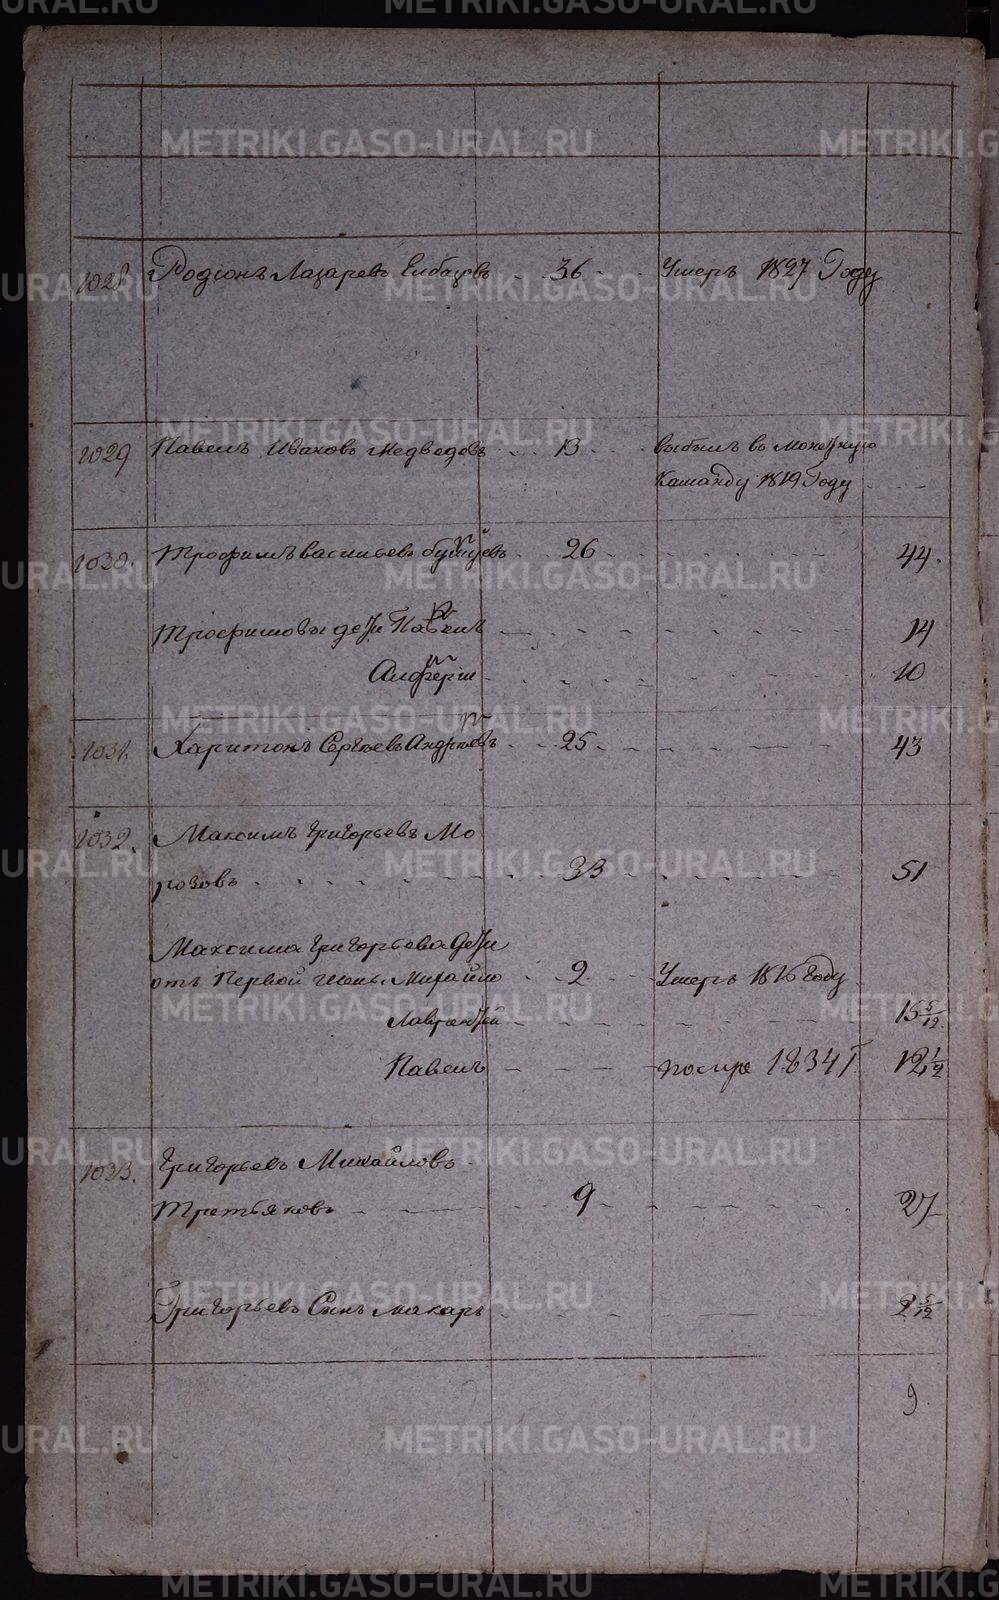 1028. Родіонъ Лазаревъ 36 Умеръ 1827 Году
1029 Павелъ Ивановъ Медведевъ 13 выбылъ в монетную
Каманду 1819 Году
1030. Трофимъ Васильевъ 26 44.
Трофимовы дети Павелъ 14
Алферій 10
1031. Харитонъ Сергѣевъ Андрѣевъ 25 43
1032. Максимъ Григорьевъ Мо
розовъ 33 51
Максима Григорьева дети
отъ Первой жены Михайло 2 Умеръ 1816 году
Лаврентей 15 5/12
Павелъ 1834 Г 12 1/2
1033. Григорьевъ Михайловъ
Третьяковъ 9 27
Григорьевъ Сынъ Макаръ 2 5/12
9.
METRIKI.GASO-URAL.RU